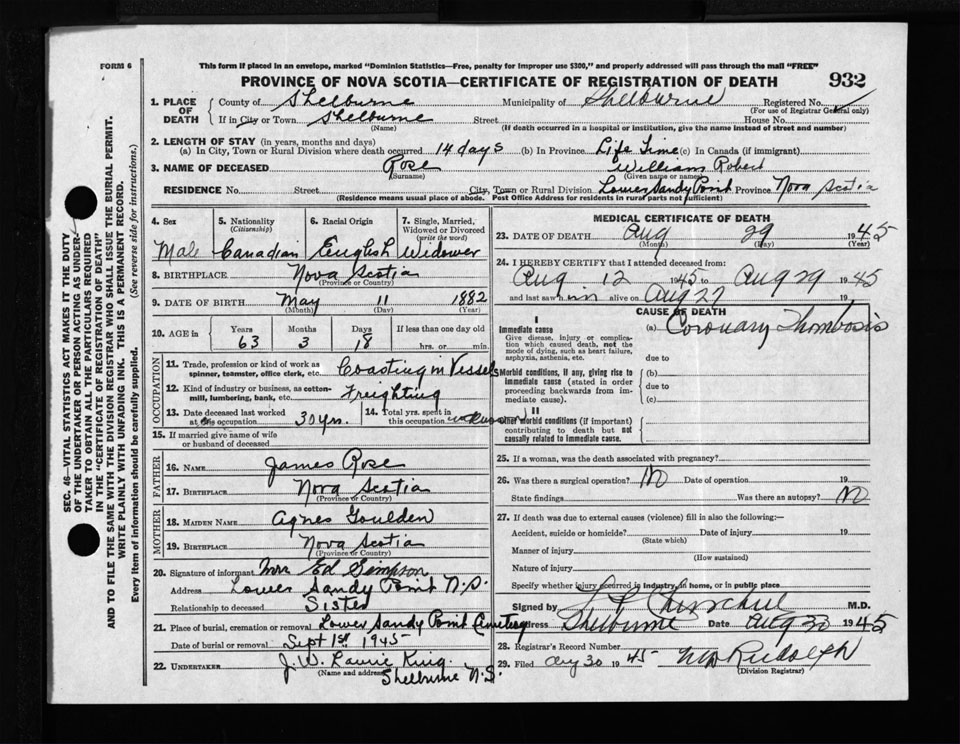 FORM 6
This form if placed in an envelope, marked "Dominion Statistics—Free, penalty for improper use $300," and properly addressed will pass through the mail "FREE"
PROVINCE OF NOVA SCOTIA—CERTIFICATE OF REGISTRATION OF DEATH 932
1. PLACE OF DEATH County of Shelburne Municipality of Shelburne Registered No.
(For use of Registrar General only)
If in City or Town Shelburne Street House No.
(Name) (If death occurred in a hospital or institution, give the name instead of street and number)
2. LENGTH OF STAY (in years, months and days)
(a) In City, Town or Rural Division where death occurred 14 days (b) In Province Life Time (c) In Canada (if immigrant)
3. NAME OF DECEASED Rose William Robert
(Surname) (Given name or names)
RESIDENCE No. Street City, Town or Rural Division Lower Sandy Point Province Nova Scotia
(Residence means usual place of abode. Post Office Address for residents in rural parts not sufficient)
4. Sex 5. Nationality (Citizenship) 6. Racial Origin 7. Single, Married, Widowed or Divorced (write the word)
Male Canadian English Widower
8. BIRTHPLACE Nova Scotia
(Province or Country)
9. DATE OF BIRTH May 11 1882
(Month) (Day) (Year)
10. AGE in Years Months Days If less than one day old
63 3 18 hrs. or min.
OCCUPATION
11. Trade, profession or kind of work as spinner, teamster, office clerk, etc. Coasting in Vessels
12. Kind of industry or business, as cotton-mill, lumbering, bank, etc. Freighting
13. Date deceased last worked at this occupation 30 yrs. 14. Total yrs. spent in this occupation unknown
15. If married give name of wife or husband of deceased
FATHER
16. NAME James Rose
17. BIRTHPLACE Nova Scotia
(Province or Country)
MOTHER
18. MAIDEN NAME Agnes Goulden
19. BIRTHPLACE Nova Scotia
(Province or Country)
20. Signature of informant Mrs Ed Simpson
Address Lower Sandy Point N.S.
Relationship to deceased Sister
21. Place of burial, cremation or removal Lower Sandy Point Cemetery
Date of burial or removal Sept 1st 1945
22. UNDERTAKER J. W. Laurie King.
(Name and address) Shelburne N.S.
MEDICAL CERTIFICATE OF DEATH
23. DATE OF DEATH Aug 29 1945
(Month) (Day) (Year)
24. I HEREBY CERTIFY that I attended deceased from:
Aug 12 1945 to Aug 29 1945
and last saw him alive on Aug 27 19
CAUSE OF DEATH
I
Immediate cause (a) Coronary Thombosis
Give disease, injury or complication which caused death, not the mode of dying, such as heart failure, asphyxia, asthenia, etc.
due to
Morbid conditions, if any, giving rise to immediate cause (stated in order proceeding backwards from immediate cause).
(b)
due to
(c)
II
Other morbid conditions (if important) contributing to death but not causally related to immediate cause.
25. If a woman, was the death associated with pregnancy?
26. Was there a surgical operation? No Date of operation 19
State findings Was there an autopsy? No
27. If death was due to external causes (violence) fill in also the following:—
Accident, suicide or homicide? Date of injury 19
(State which)
Manner of injury
(How sustained)
Nature of injury
Specify whether injury occurred in industry, in home, or in public place
Signed by Churchill M.D.
Address Shelburne Date Aug 30 1945
28. Registrar's Record Number
29. Filed Aug 30 1945 Rudolph
(Division Registrar)
SEC. 46—VITAL STATISTICS ACT MAKES IT THE DUTY
OF THE UNDERTAKER OR PERSON ACTING AS UNDER-
TAKER TO OBTAIN ALL THE PARTICULARS REQUIRED
IN THE "CERTIFICATE OF REGISTRATION OF DEATH"
AND TO FILE THE SAME WITH THE DIVISION REGISTRAR WHO SHALL ISSUE THE BURIAL PERMIT.
WRITE PLAINLY WITH UNFADING INK. THIS IS A PERMANENT RECORD.
Every item of information should be carefully supplied. (See reverse side for instructions.)